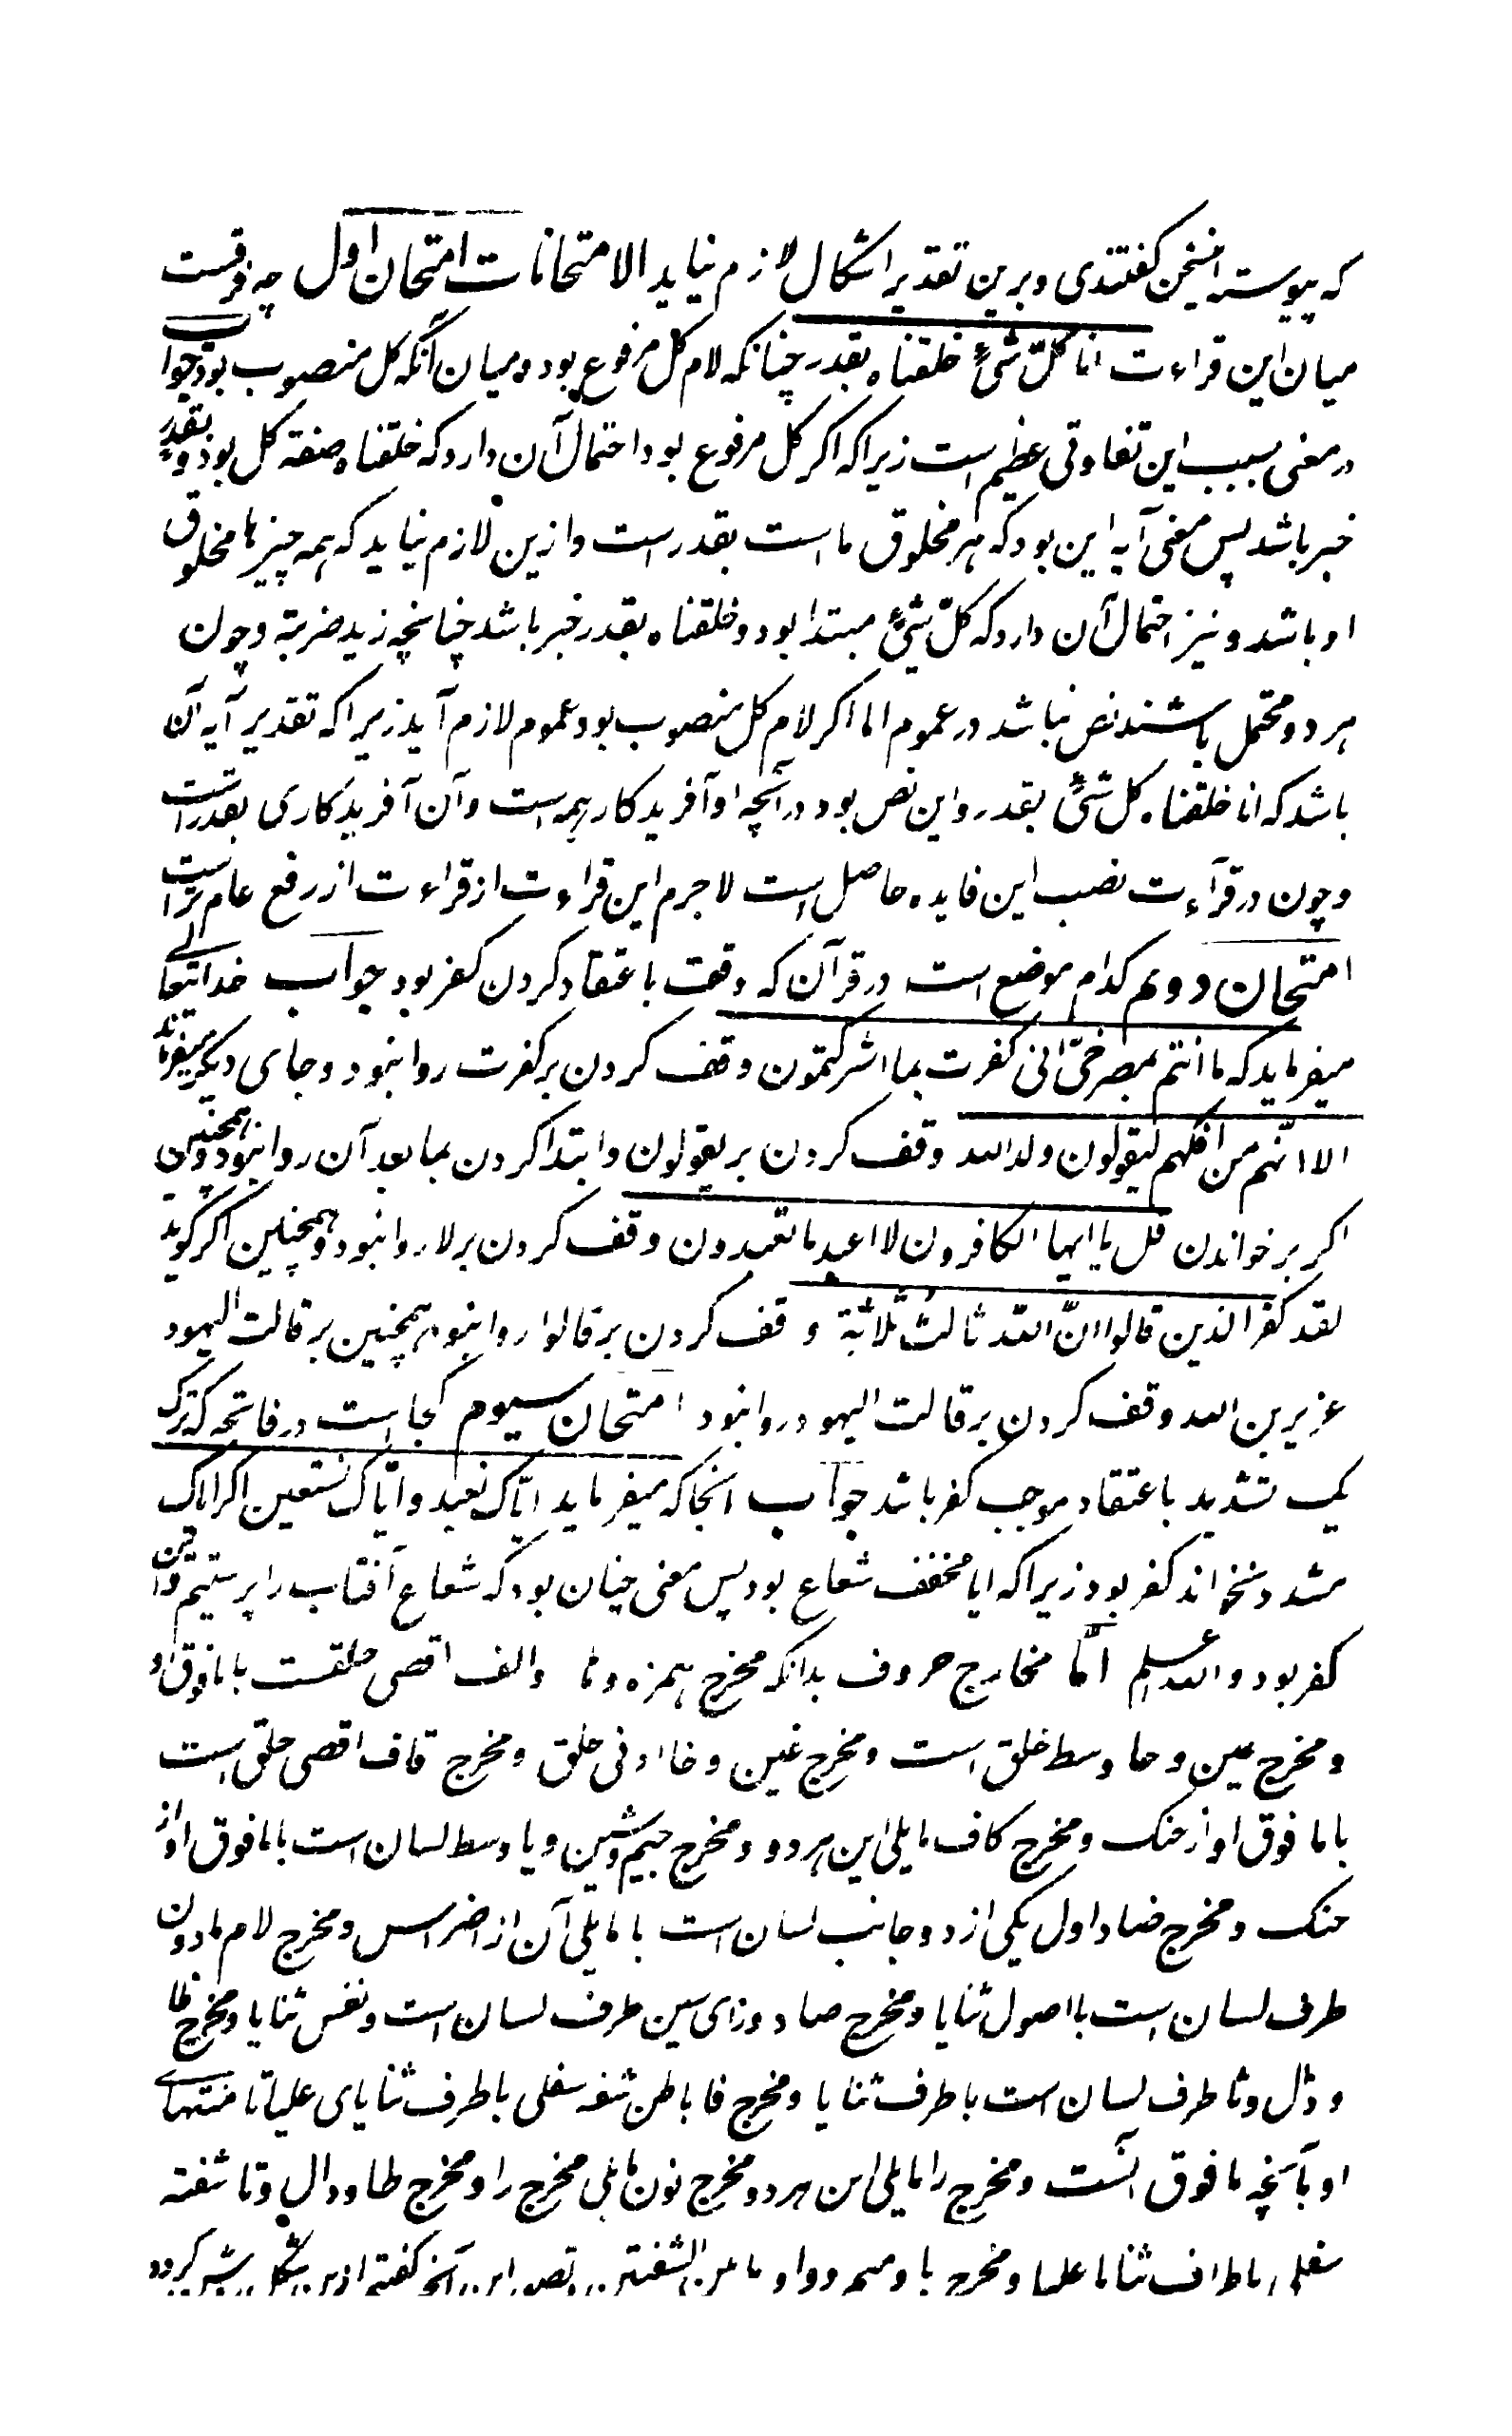 که پیوسته این سخن گفتندی و برین تقدیر اشکال لازم نیاید الامتحانات امتحان اول چه فرقست
میان این قراءت انا کلّ شیءٍ خلقناه بقدر چنانکه لام کل مرفوع بود و میان آنکه کل منصوب بود جواب
در معنی بسبب این تفاوتی عظیم است زیرا که اکر کل مرفوع بود احتمال آن دارد که خلقناه صفة کل بود و بقدر
خبر باشد پس معنی آیه این بود که هر مخلوق ما است بقدر است و ازین لازم نیاید که همه چیزها مخلوق
او باشد و نیز احتمال آن دارد که کلّ شیءٍ مبتدا بود و خلقناه بقدر خبر باشد چنانچه زید ضربته و چون
هر دو محتمل باشند نص نباشد در عموم اما اکر لام کل منصوب بود عموم لازم آید زیرا که تقدیر آیه آن
باشد که انا خلقناه کل شیءٍ بقدر و این نص بود در آنچه او آفریدکار همه است و آن آفریدکاری بقدر است
و چون در قرآءت نصب این فایده حاصل است لاجرم این قراءت از قراءت از رفع عام تر است
امتحان دوم کدام موضع است در قرآن که وقف باعتقاد کردن کفر بود جواب خدایتعالی
میفرماید که ما انتم بمصرخیّ انی کفرت بما اشرکتمون وقف کردن بر کفرت روا نبود و جای دیکر میفرماید
الا انّهم من افکهم لیقولون ولد الله وقف کردن بر یقولون و ابتدا کردن بما بعد آن روا نبود و همچنین
اکر بر خواندن قل یا ایها الکافرون لا اعبد ما تعبدون وقف کردن بر لا روا نبود و همچنین اکر کوید
لقد کفر الذین قالوا انّ الله ثالث ثلاثة وقف کردن بر قالوا روا نبود همچنین بر قالت الیهود
عزیر بن الله وقف کردن بر قالت الیهود روا نبود امتحان سیوم کجا است در فاتحه که ترک
یک تشدید باعتقاد موجب کفر باشد جواب انجا که میفرماید ایّاک نعبد و ایّاک نستعین اکر ایاک
مشدد نخواند کفر بود زیرا که ایا مخفف شعاع بود پس معنی چنان بود که شعاع آفتاب را پرستیم و این
کفر بود و الله اعلم امّا مخارج حروف بدانکه مخرج همزه و ها و الف اقصی حلقست با ما فوق او
و مخرج عین و حا وسط حلق است و مخرج غین و خا ادنی حلق و مخرج قاف اقصی حلق است
با ما فوق او از حنک و مخرج کاف ما یلی این هر دو و مخرج جیم و شین و یا وسط لسان است با ما فوق او از
حنک و مخرج ضاد اول یکی از دو جانب لسان است با ما یلی آن از اضراس و مخرج لام مادون
طرف لسان است با اصول ثنایا و مخرج صاد و زای سین طرف لسان است و نفس ثنایا و مخرج ظا
و ذال و ثا طرف لسان است با طرف ثنایا و مخرج فا باطن شفه سفلی با طرف ثنایای علیا تا منتهای
او بآنچه ما فوق آنست و مخرج را ما یلی این هر دو مخرج نون ما یلی مخرج را و مخرج طا و دال و تا شفته
سفلی با طراف ثنایا علیا و مخرج با و میم و واو ما بین الشفتین